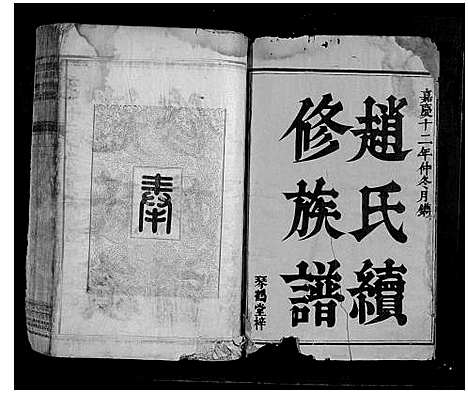 嘉慶十二年仲冬月鐫
趙氏續
修族譜
琴鶴堂梓